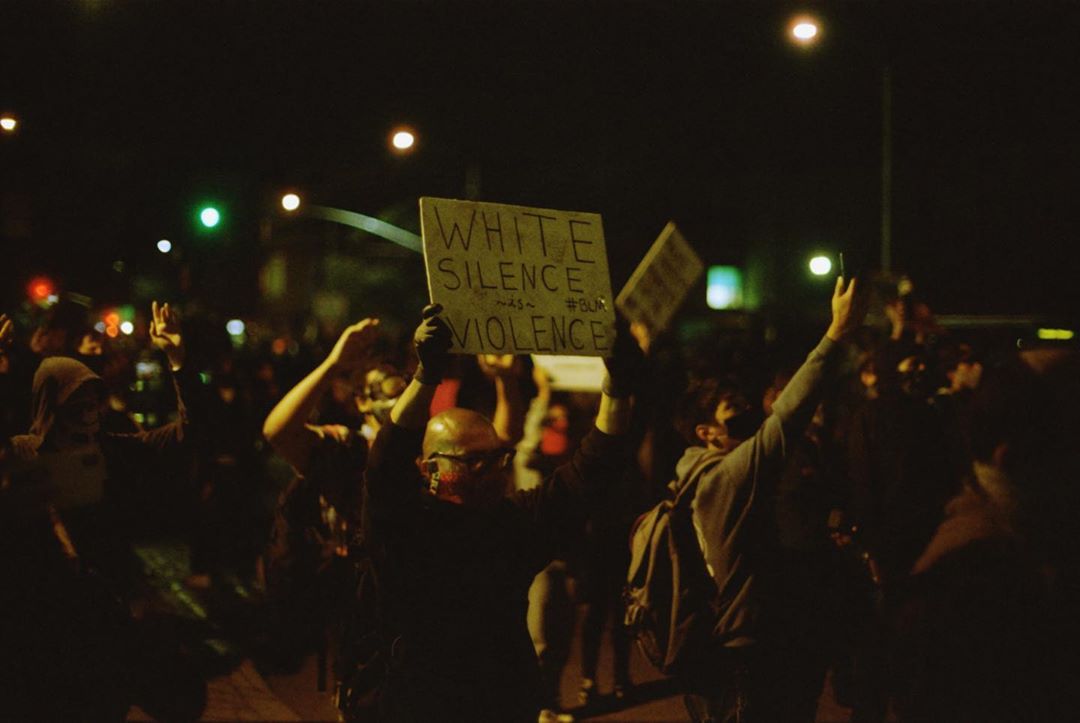 WHITE
SILENCE
~is~ #BLM
VIOLENCE